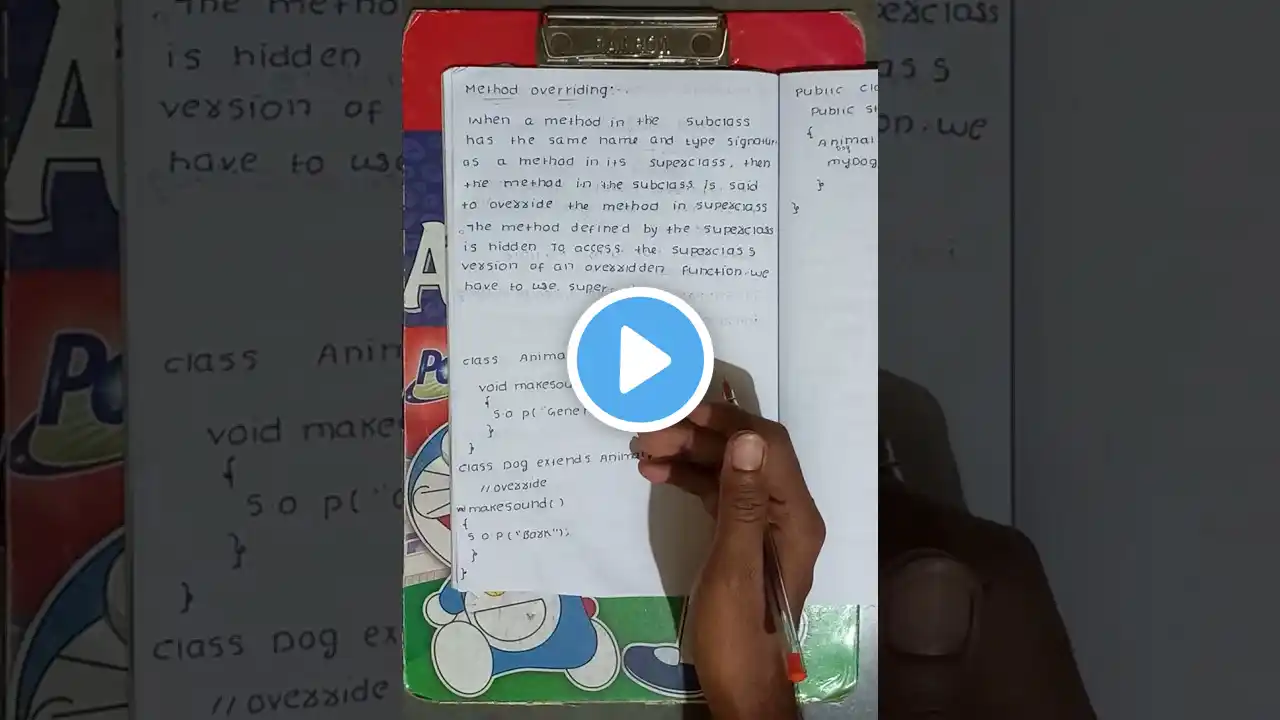 Method overriding:-.
When a method in the subclass
has the same name and type signatur
as a method in its superclass, then
the method in the subclass is said
to override the method in superclass
. The method defined by the superclass
is hidden To access the superclass
version of an overridden function we
have to use super
class Anima
void makesou
{
S.o p("Gener
}
}
class Dog extends Animal
// override
makesound()
{
S o p("Bark");
}
}
Public cla
Public st
{
Animal
myDog
}
}